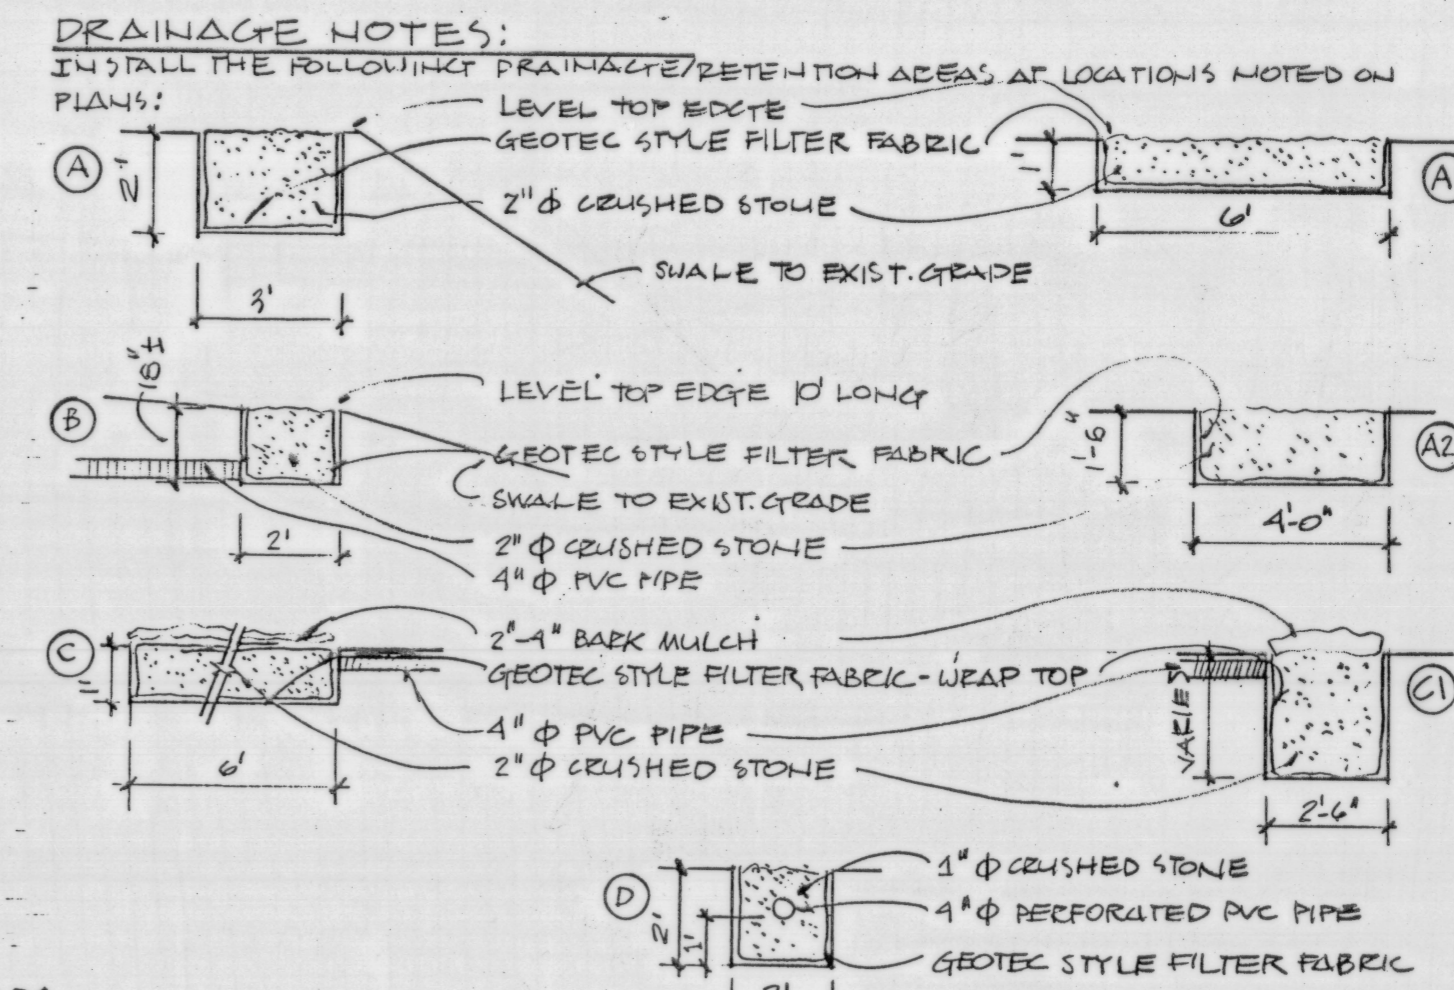 DRAINAGE NOTES:
INSTALL THE FOLLOWING DRAINAGE/RETENTION AREAS AT LOCATIONS NOTED ON
PLANS:
LEVEL TOP EDGE
GEOTEC STYLE FILTER FABRIC
2" Φ CRUSHED STONE
SWALE TO EXIST. GRADE
A
2'
3'
A
1'
6'
B
18" ±
2'
LEVEL TOP EDGE 10' LONG
GEOTEC STYLE FILTER FABRIC
SWALE TO EXIST. GRADE
2" Φ CRUSHED STONE
4" Φ PVC PIPE
A2
1'-6"
4'-0"
C
1'
6'
2"-4" BARK MULCH
GEOTEC STYLE FILTER FABRIC - WRAP TOP
4" Φ PVC PIPE
2" Φ CRUSHED STONE
C1
VARIES
2'-6"
D
2'
1'
1" Φ CRUSHED STONE
4" Φ PERFORATED PVC PIPE
GEOTEC STYLE FILTER FABRIC